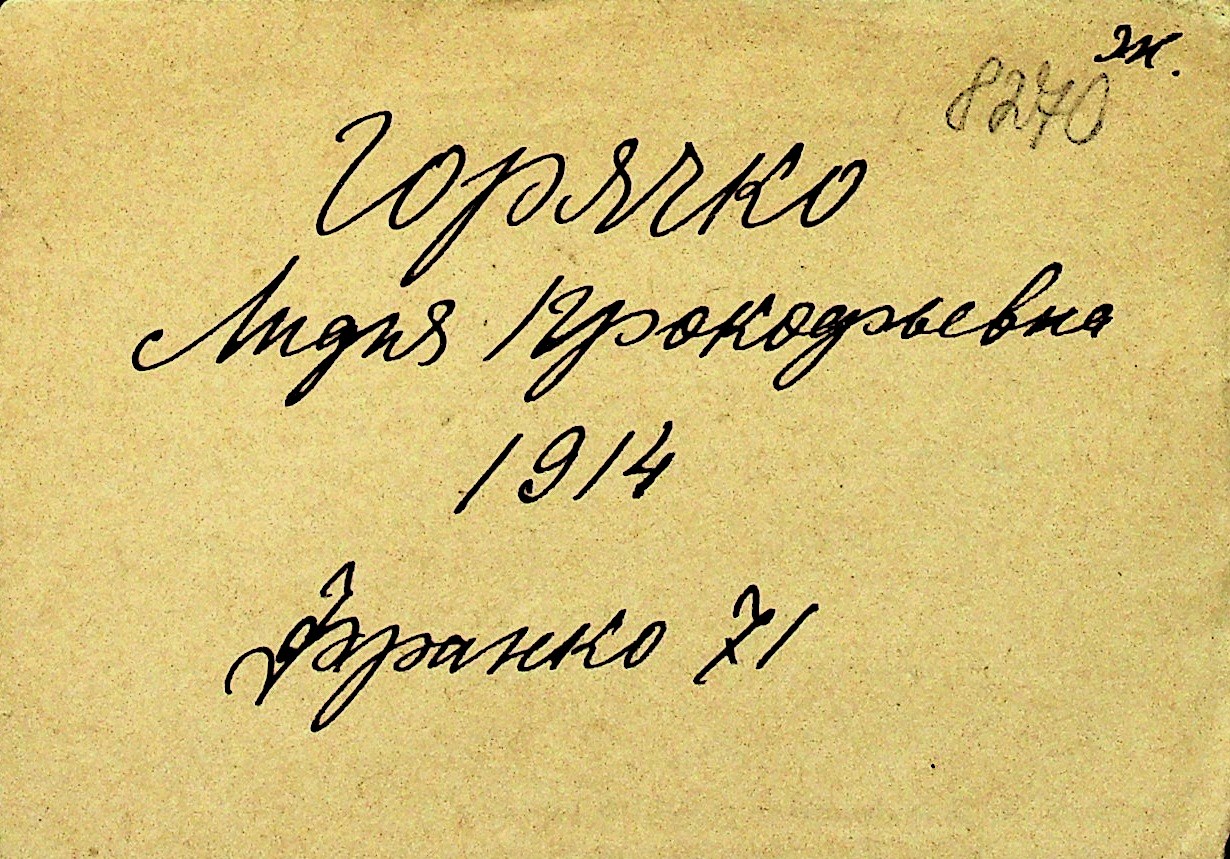 ж.
8270
Горячко
Лидия Прокофьевна
1914
Франко 71